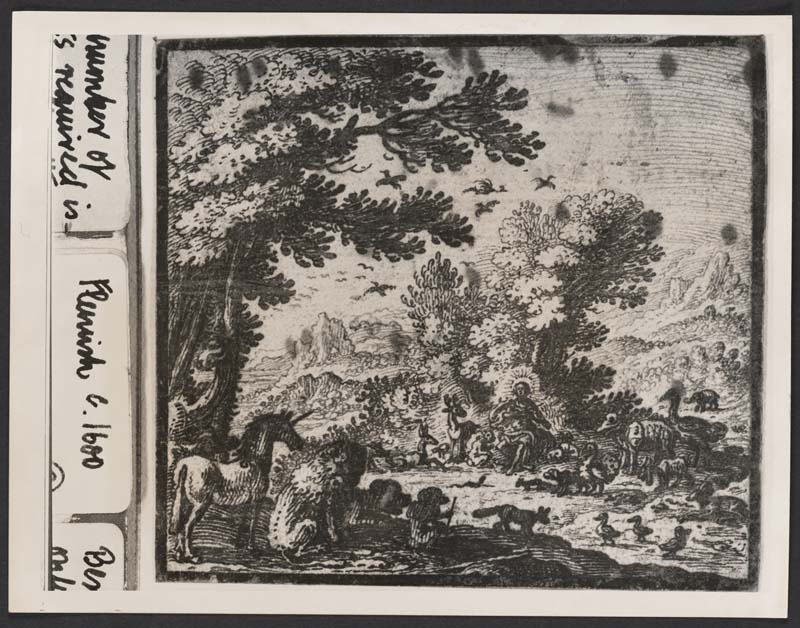 number of
s required in
Flemish c. 1600